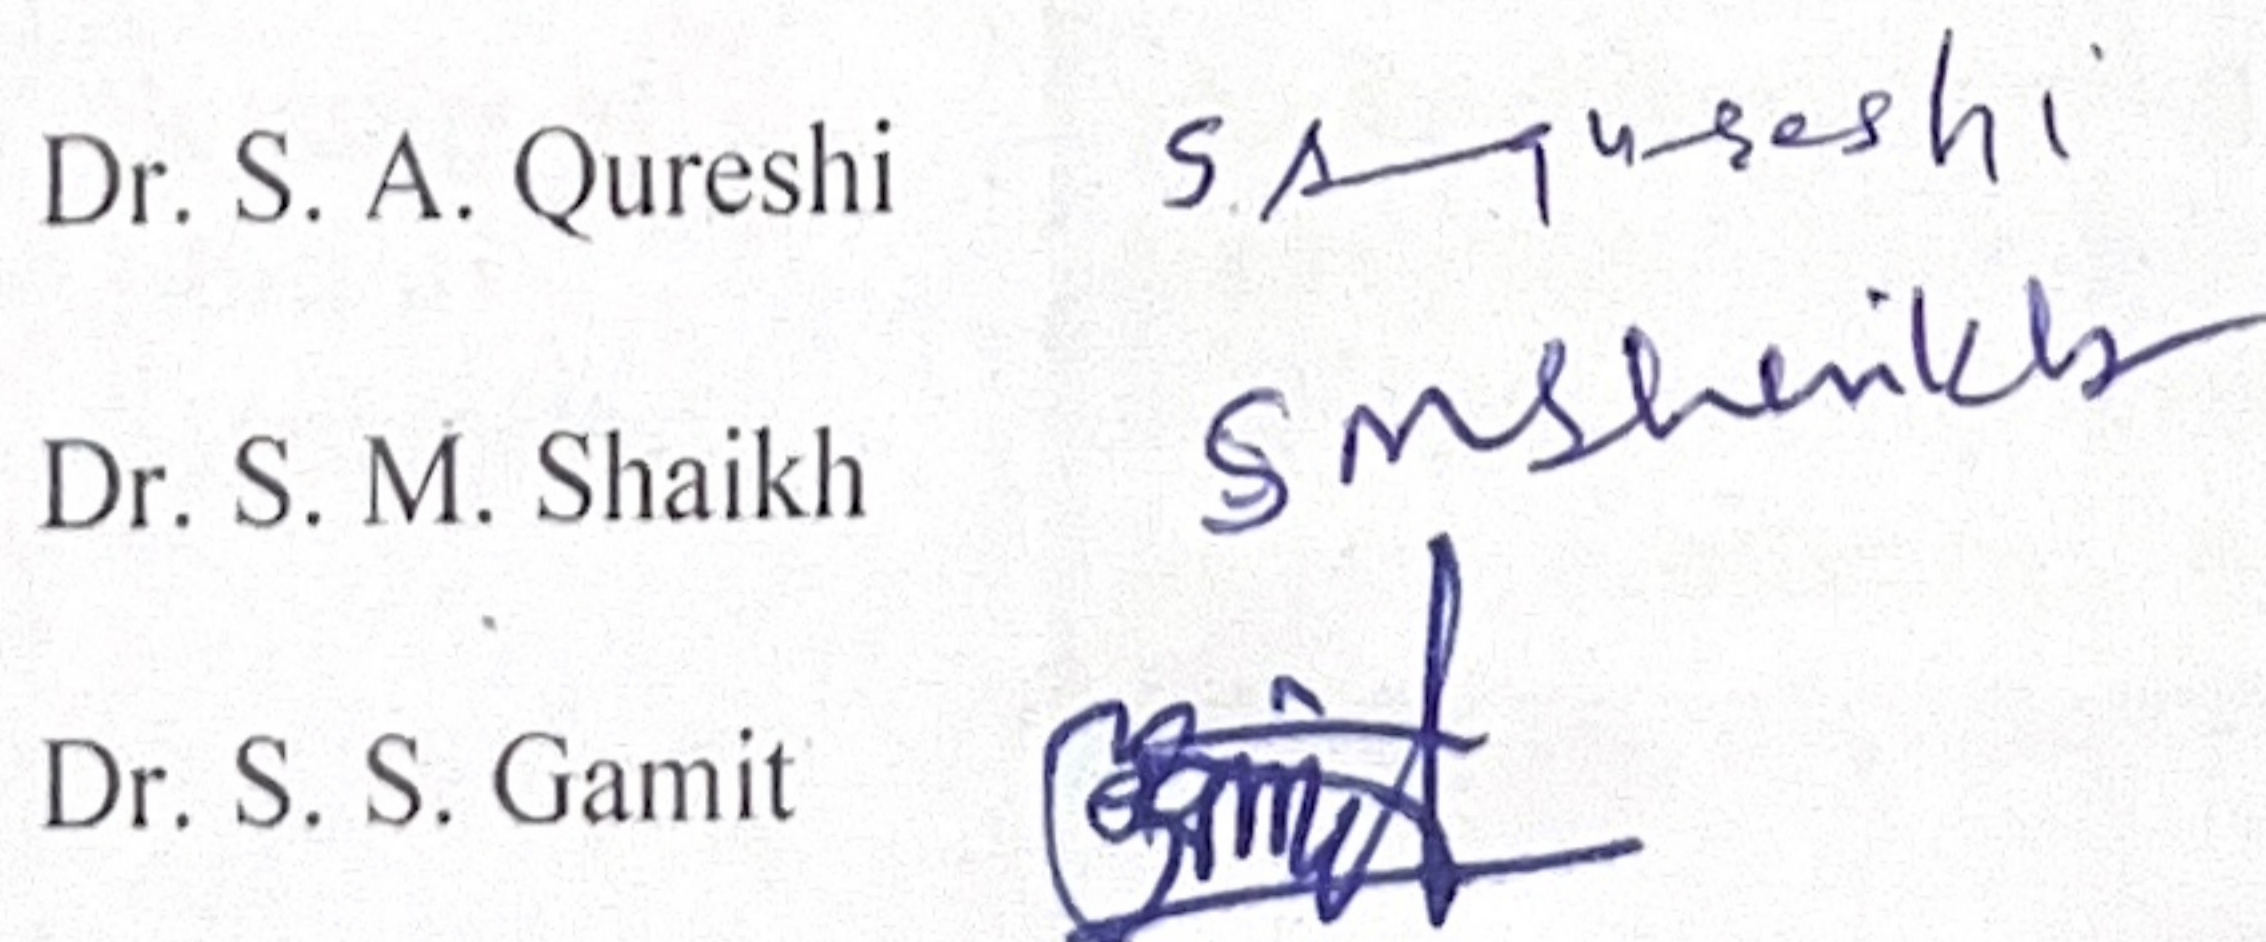 Dr. S. A. Qureshi S A qureshi
Dr. S. M. Shaikh S M Shaikh
Dr. S. S. Gamit